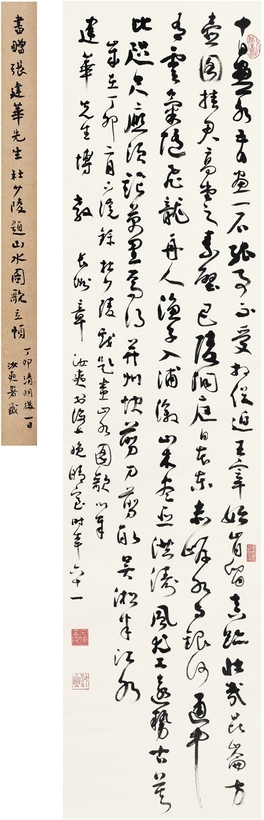 十日畫一水五日畫一石能事不受相促迫王宰始肯留真跡壯哉崑崙方
壺圖挂君高堂之素壁巴陵洞庭日本東赤岸水与銀河通中
有雲氣隨飛龍舟人漁子入浦漵山木盡亞洪濤風尤工遠勢古莫
比咫尺應須論萬里焉得并州快剪刀剪取吳淞半江水
歲在丁卯二月下浣錄杜少陵戲題畫山水圖歌以奉
建華先生博教 長洲章汝奭書於海上晚晴室時年六十一
書贈張建華先生杜少陵題山水圖歌立幀
丁卯清明後一日
汝奭署籤